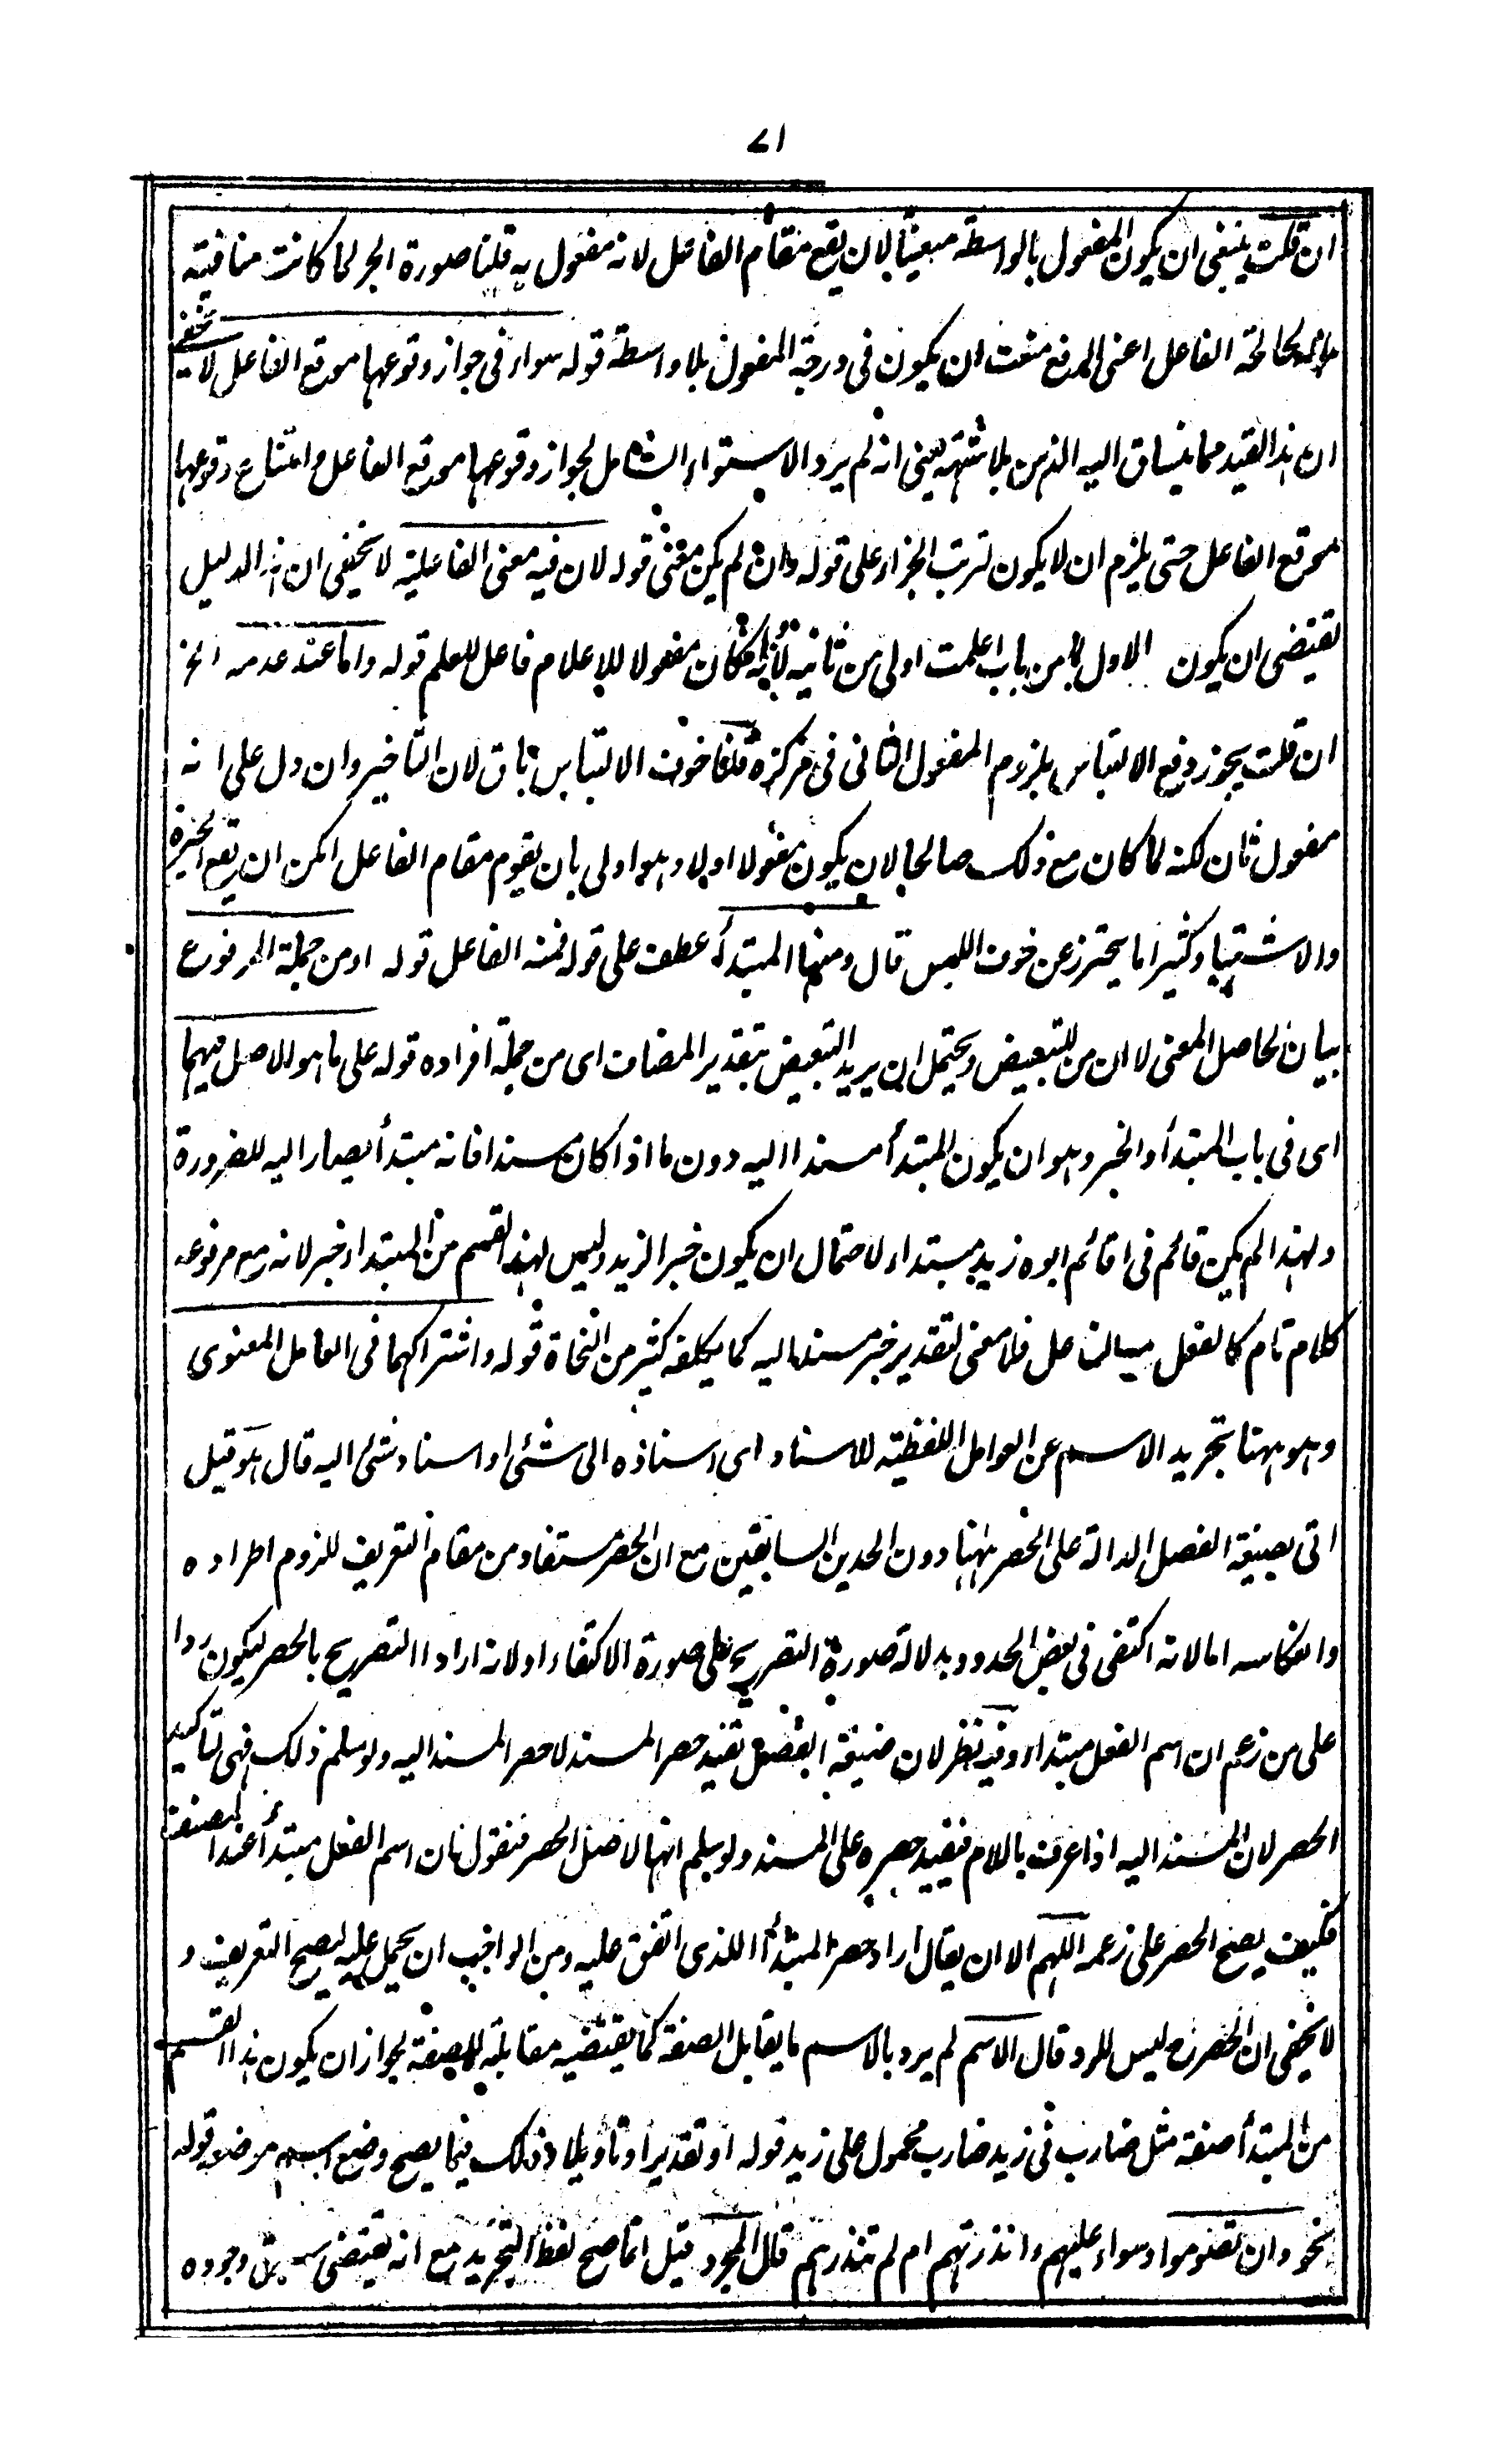 ٧١
ان قلت ينبغى ان يكون المفعول بالواسطة متعينا لان يقع مقام الفاعل لانه مفعول به قلنا صورة الجر لما كانت منافية
لحالة الفاعل اعنى الرفع منعت ان يكون فى درجة المفعول بلا واسطة قوله سواء فى جواز وقوعها موقع الفاعل لا يخفى
ان هذا القيد مما ينساق اليه الذهن بلا شبهة يعنى انه لم يرد الاستواء الشامل لجواز وقوعها موقع الفاعل وامتناع وقوعها
موقع الفاعل حتى يلزم ان لا يكون لترتب الجزاء على قوله وان لم يكن معنى قوله لان فيه معنى الفاعلية لا يخفى ان هذا الدليل
يقتضى ان يكون الاول من باب اعلمت اولى من ثانيه لانه كان مفعولا للاعلام فاعل للعلم قوله واما عند عدمه الخ
ان قلت يجوز رفع الالتباس بلزوم المفعول الثانى فى مركزه قلنا خوف الالتباس باق لان التاخير وان دل على انه
مفعول ثان لكنه لما كان مع ذلك صالحا لان يكون مفعولا اولا وهو اولى بان يقوم مقام الفاعل امكن ان يقع الحيرة
والاشتباه وكثيرا ما يحترز عن خوف اللبس قال ومنها المبتدأ عطف على قوله فمنه الفاعل قوله او من جملة المرفوع
بيان لحاصل المعنى لا ان من للتبعيض ويحتمل ان يريد التبعيض بتقدير المضاف اى من جملة افراده قوله على ما هو الاصل فيهما
اى فى باب المبتدأ والخبر وهو ان يكون المبتدأ مسندا اليه دون ما اذا كان مسندا فانه مبتدأ يصار اليه للضرورة
ولهذا لم يكن قائم فى اقائم ابوه زيد مبتداء لاحتمال ان يكون خبرا لزيد وليس لهذا القسم من المبتداء خبر لانه مع مرفوعه
كلام تام كالفعل مع الفاعل فلا معنى لتقدير خبر مسند اليه كما يكلفه كثير من النحاة قوله واشتراكهما فى العامل المعنوى
وهو ههنا تجريد الاسم عن العوامل اللفظية للاسناد اى اسناده الى شئ او اسناد شئ اليه قال هو قيل
اتى بصيغة الفصل الدالة على الحصر ههنا دون الحدين السابقين مع ان الحصر مستفاد من مقام التعريف للزوم اطراده
وانعكاسه اما لانه اكتفى فى بعض الحدود بدلالة صورة التصريح على صورة الاكتفاء او لانه اراد التصريح بالحصر ليكون ردا
على من زعم ان اسم الفعل مبتداء وفيه نظر لان صيغة الفصل تفيد حصر المسند لا حصر المسند اليه ولو سلم ذلك فهى لتاكيد
الحصر لان المسند اليه اذا عرف باللام فيفيد حصره على المسند ولو سلم انها لاصل الحصر فنقول بان اسم الفعل مبتدأ عند المصنف
فكيف يصح الحصر على زعمه اللهم الا ان يقال اراد حصر المبتدأ الذى اتفق عليه ومن الواجب ان يحمل عليه ليصح التعريف و
لا يخفى ان الحصر ح ليس للرد قال الاسم لم يرد بالاسم ما يقابل الصفة كما يقتضيه مقابلته للصفة لجواز ان يكون هذا القسم
من المبتدأ صفة مثل ضارب فى زيد ضارب محمول على زيد قوله او تقديرا وتاويلا وذلك فيما يصح وضع اسم موضعه قوله
نحو وان تصوموا وسواء عليهم ءانذرتهم ام لم تنذرهم قال المجرد قيل انما صح لفظ التجريد مع انه يقتضى سبق وجوده